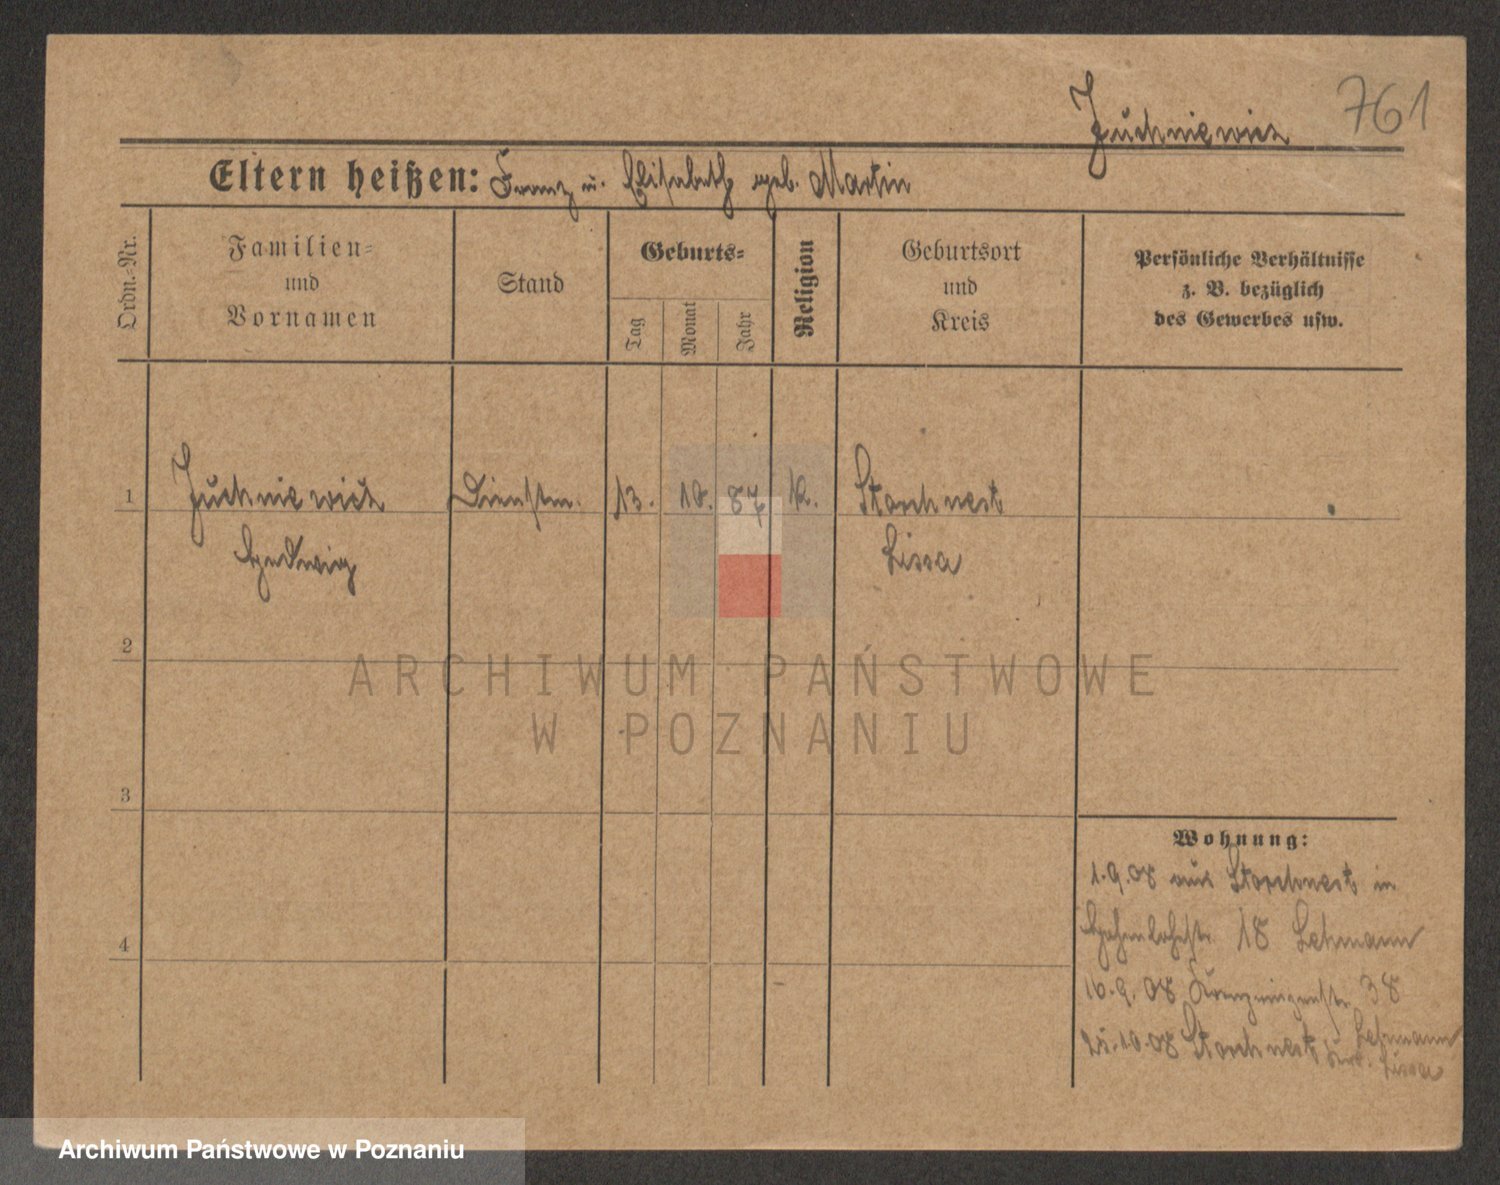 761
Juchniewicz
Eltern heißen: Franz u. Elisabeth geb. Martin
Ordn.-Nr.
Familien-
und
Vornamen
Stand
Geburts-
Tag
Monat
Jahr
Religion
Geburtsort
und
Kreis
Persönliche Verhältnisse
z. B. bezüglich
des Gewerbes usw.
1 Juchniewicz Dienstm. 13. 10. 87 k. Storchnest
Hedwig Lissa
2
3
4
Wohnung:
1.9.08 aus Storchnest in
Hohenlohestr. 18 Lehmann
16.9.08 38
Lehmann
25.10.08 Storchnest Krs. Lissa
ARCHIWUM PAŃSTWOWE
W POZNANIU
Archiwum Państwowe w Poznaniu